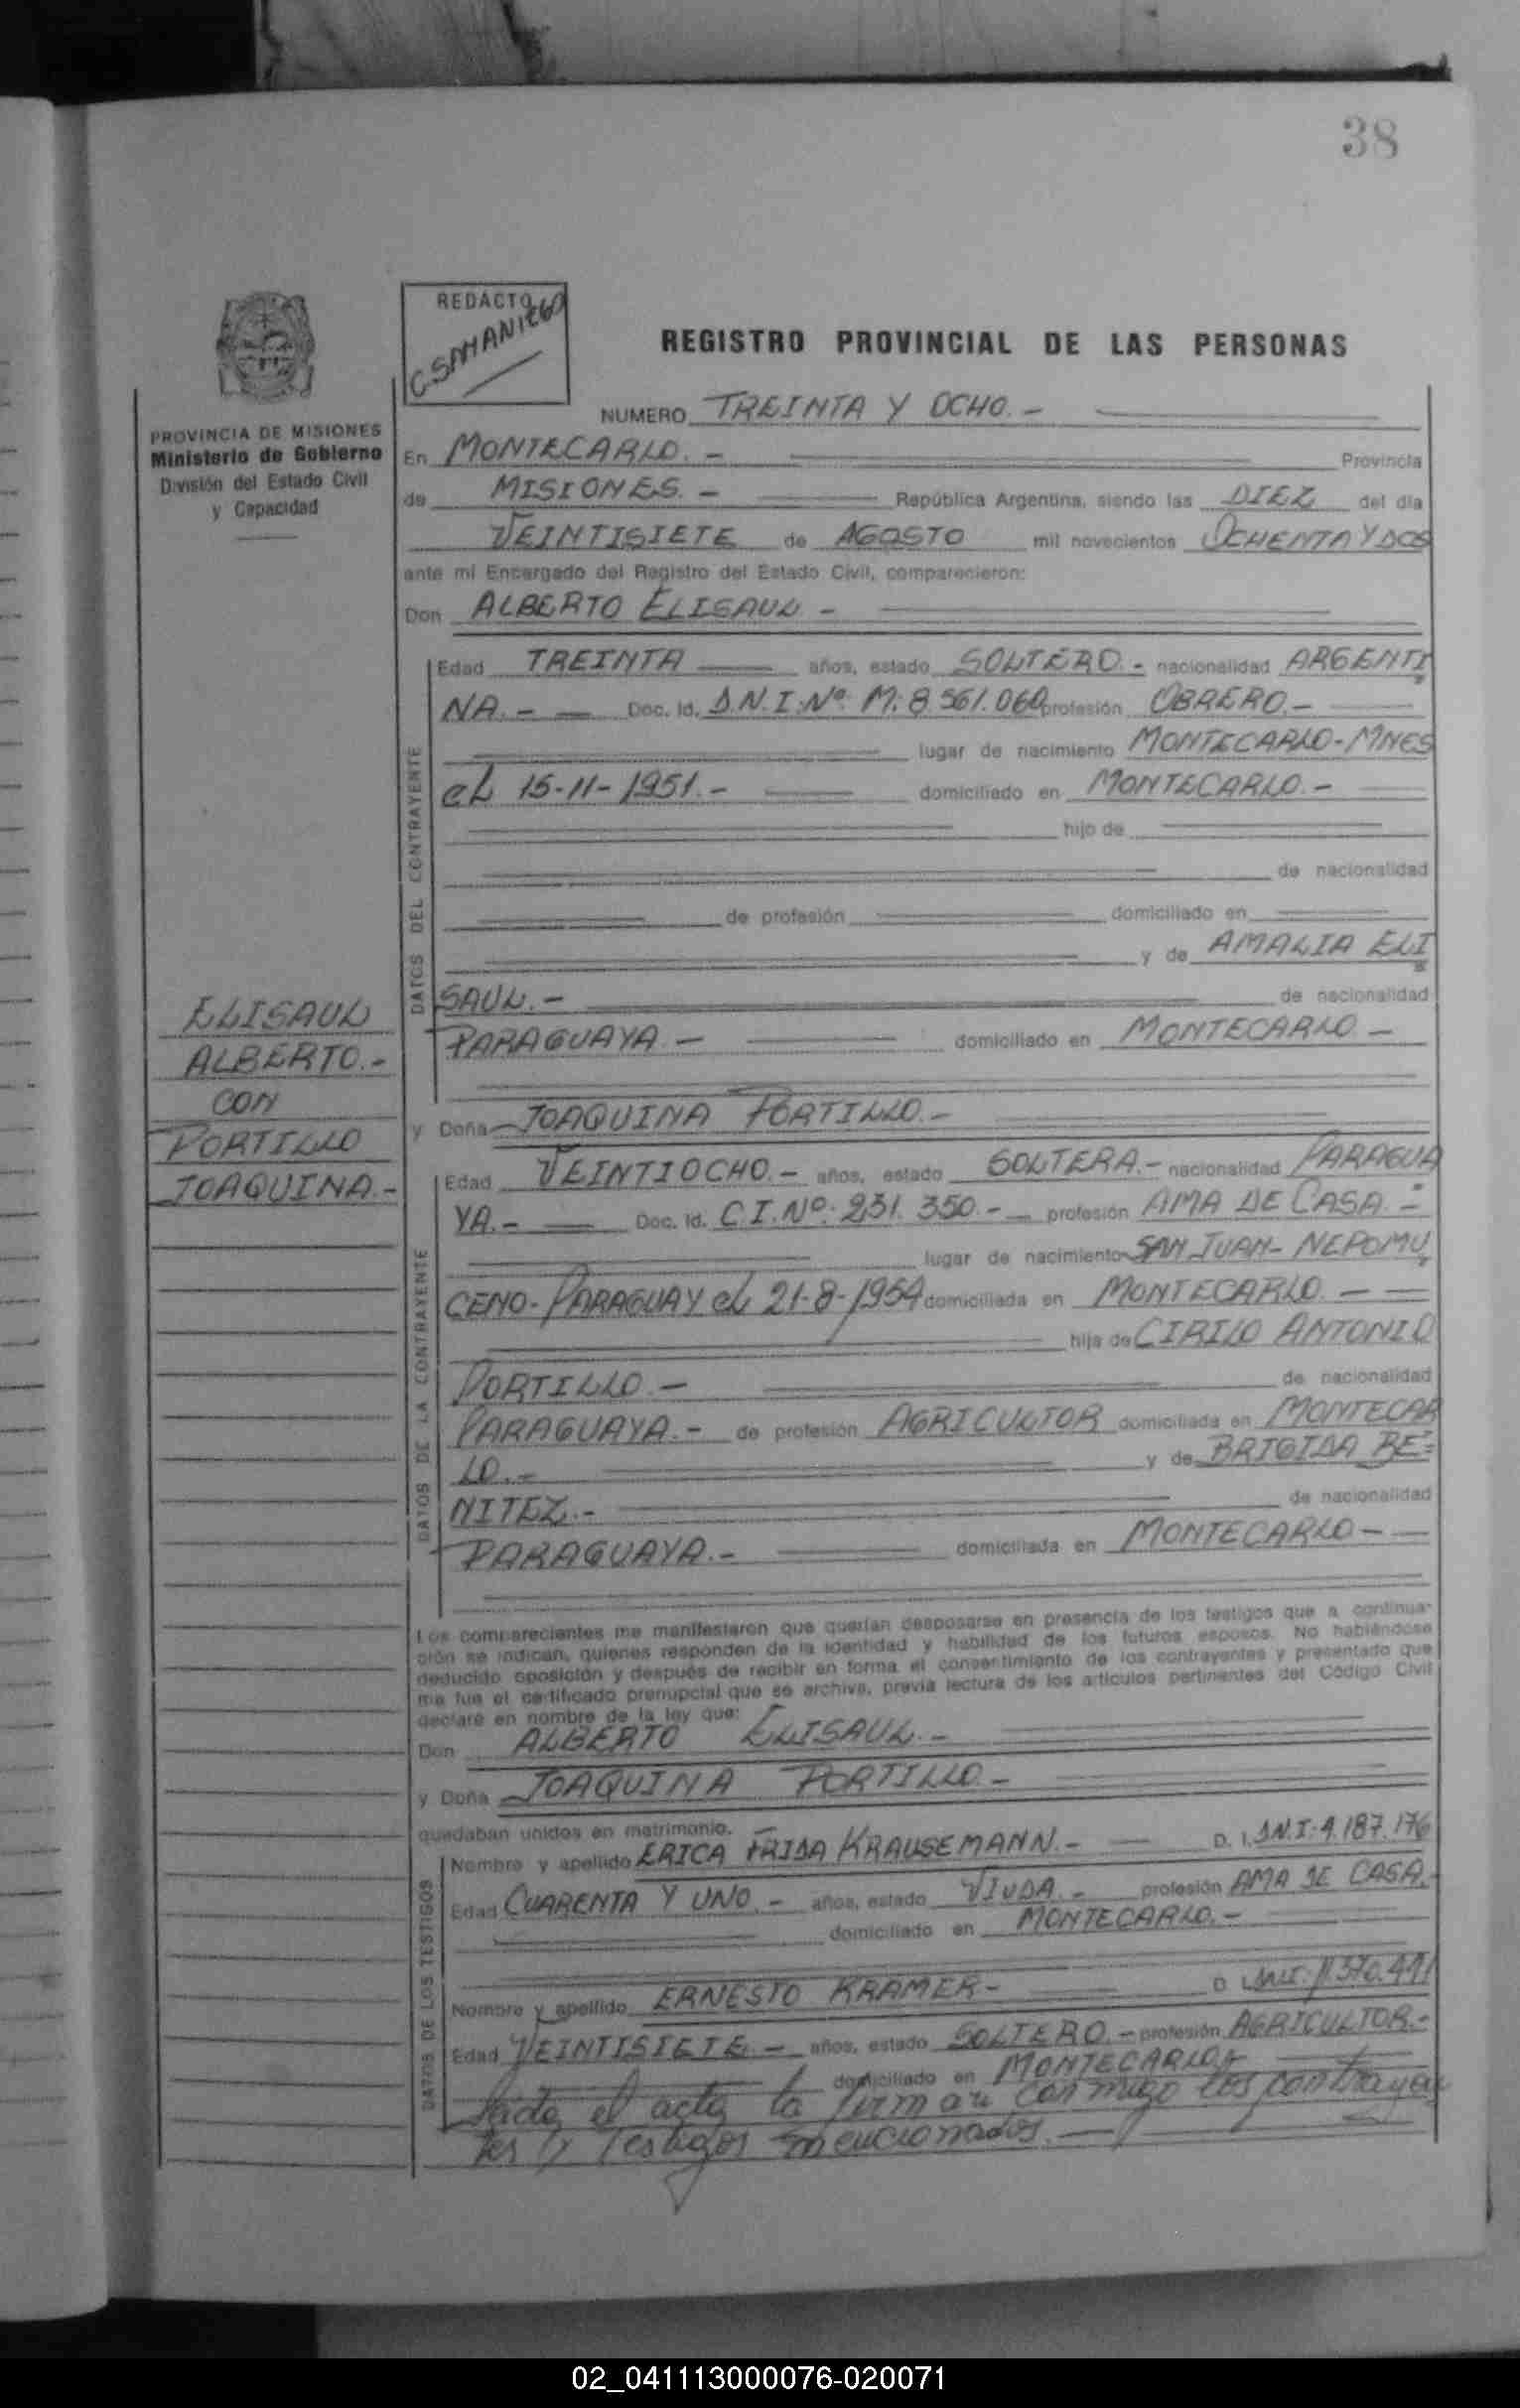 38
REDACTO
C. SAMANIEGO
REGISTRO PROVINCIAL DE LAS PERSONAS
PROVINCIA DE MISIONES
Ministerio de Gobierno
División del Estado Civil
y Capacidad
NUMERO TREINTA Y OCHO.-
En MONTECARLO.- Provincia
de MISIONES.- República Argentina, siendo las DIEZ del día
VEINTISIETE de AGOSTO mil novecientos OCHENTA Y DOS
ante mi Encargado del Registro del Estado Civil, comparecieron:
Don ALBERTO ELISAUL.-
DATOS DEL CONTRAYENTE
Edad TREINTA años, estado SOLTERO.- nacionalidad ARGENTI
NA.- Doc. Id. D.N.I.Nº: M: 8.561.060 profesión OBRERO.-
lugar de nacimiento MONTECARLO-MNES
el 15-11-1951.- domiciliado en MONTECARLO.-
hijo de
de nacionalidad
de profesión domiciliado en
y de AMALIA ELI
SAUL.- de nacionalidad
PARAGUAYA.- domiciliado en MONTECARLO.-
ELISAUL
ALBERTO.-
CON
PORTILLO
JOAQUINA.-
y Doña JOAQUINA PORTILLO.-
DATOS DE LA CONTRAYENTE
Edad VEINTIOCHO.- años, estado SOLTERA.- nacionalidad PARAGUA
YA.- Doc. Id. C.I.Nº: 231.350.- profesión AMA DE CASA.-
lugar de nacimiento SAN JUAN-NEPOMU
CENO-PARAGUAY el 21-8-1954 domiciliada en MONTECARLO.-
hija de CIRILO ANTONIO
PORTILLO.- de nacionalidad
PARAGUAYA.- de profesión AGRICULTOR domiciliada en MONTECAR
LO.- y de BRIGIDA BE=
NITEZ.- de nacionalidad
PARAGUAYA.- domiciliada en MONTECARLO.-
Los comparecientes me manifestaron que querían desposarse en presencia de los testigos que a continua-
ción se indican, quienes responden de la identidad y habilidad de los futuros esposos. No habiéndose
deducido oposición y después de recibir en forma el consentimiento de los contrayentes y presentado que
me fue el certificado prenupcial que se archiva, previa lectura de los artículos pertinentes del Código Civil
declaré en nombre de la ley que:
Don ALBERTO ELISAUL.-
y Doña JOAQUINA PORTILLO.-
quedaban unidos en matrimonio.
DATOS DE LOS TESTIGOS
Nombre y apellido ERICA FRIDA KRAUSEMANN.- D. I. D.N.I: 4.187.176
Edad CUARENTA Y UNO.- años, estado VIUDA.- profesión AMA DE CASA.-
domiciliado en MONTECARLO.-
Nombre y apellido ERNESTO KRAMER.- D. I. D.N.I: 11.370.491
Edad VEINTISIETE.- años, estado SOLTERO.- profesión AGRICULTOR.-
domiciliado en MONTECARLO.-
el acta la firman conmigo los contrayen
tes y testigos mencionados.
02_041113000076-020071